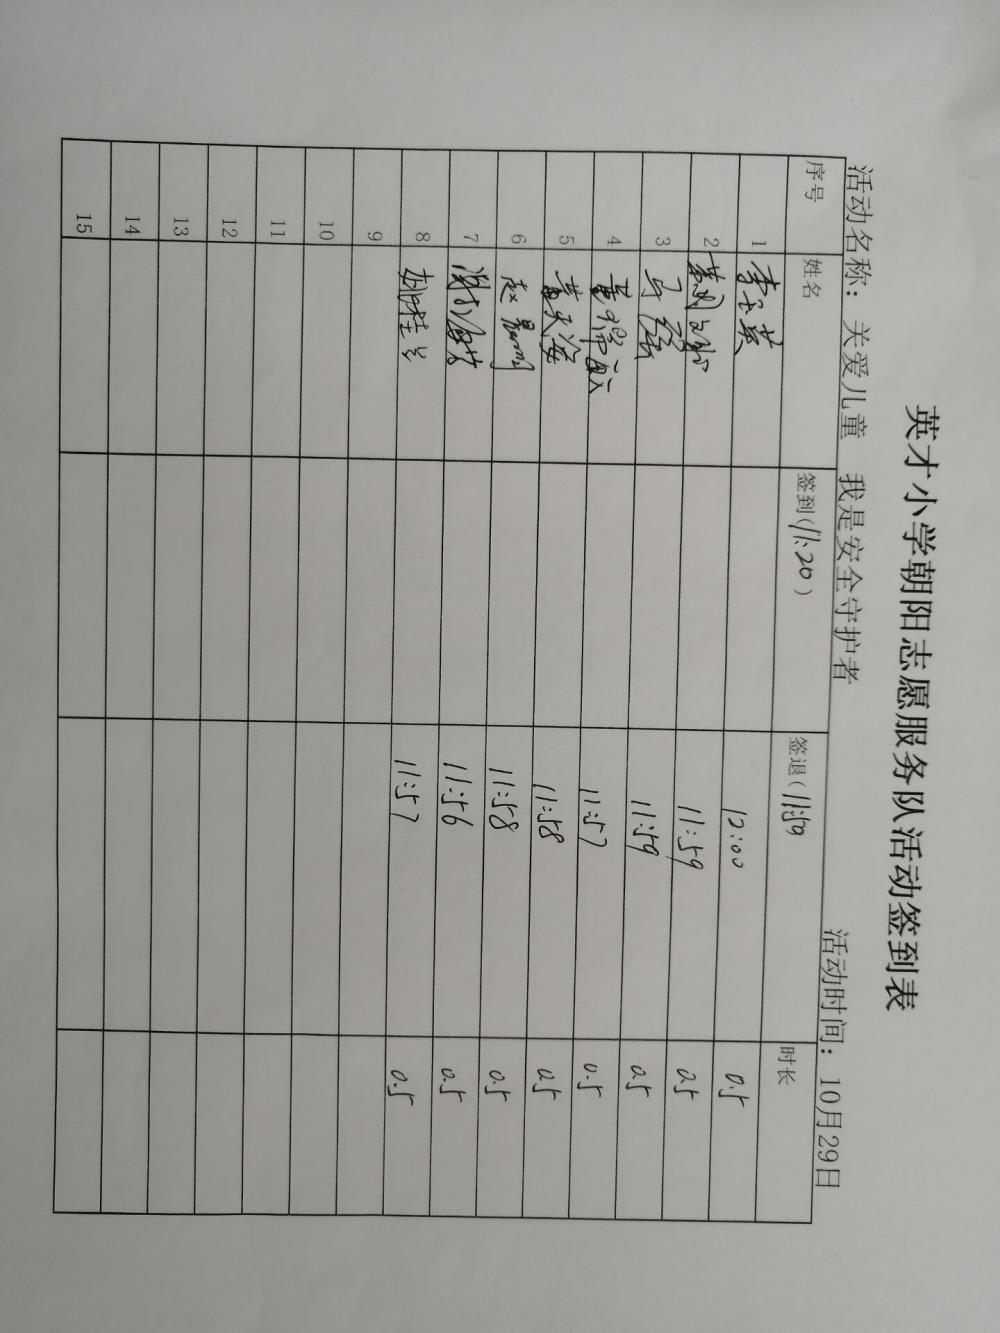 英才小学朝阳志愿服务队活动签到表
活动名称：关爱儿童 我是安全守护者 活动时间：10月29日
序号 姓名 签到(11:20) 签退(11:59 时长
1 李玉英 12:00 0.5
2 11:59 0.5
3 马 11:59 0.5
4 11:57 0.5
5 黄天海 11:58 0.5
6 赵晨 11:58 0.5
7 11:56 0.5
8 姚桂兰 11:57 0.5
9
10
11
12
13
14
15